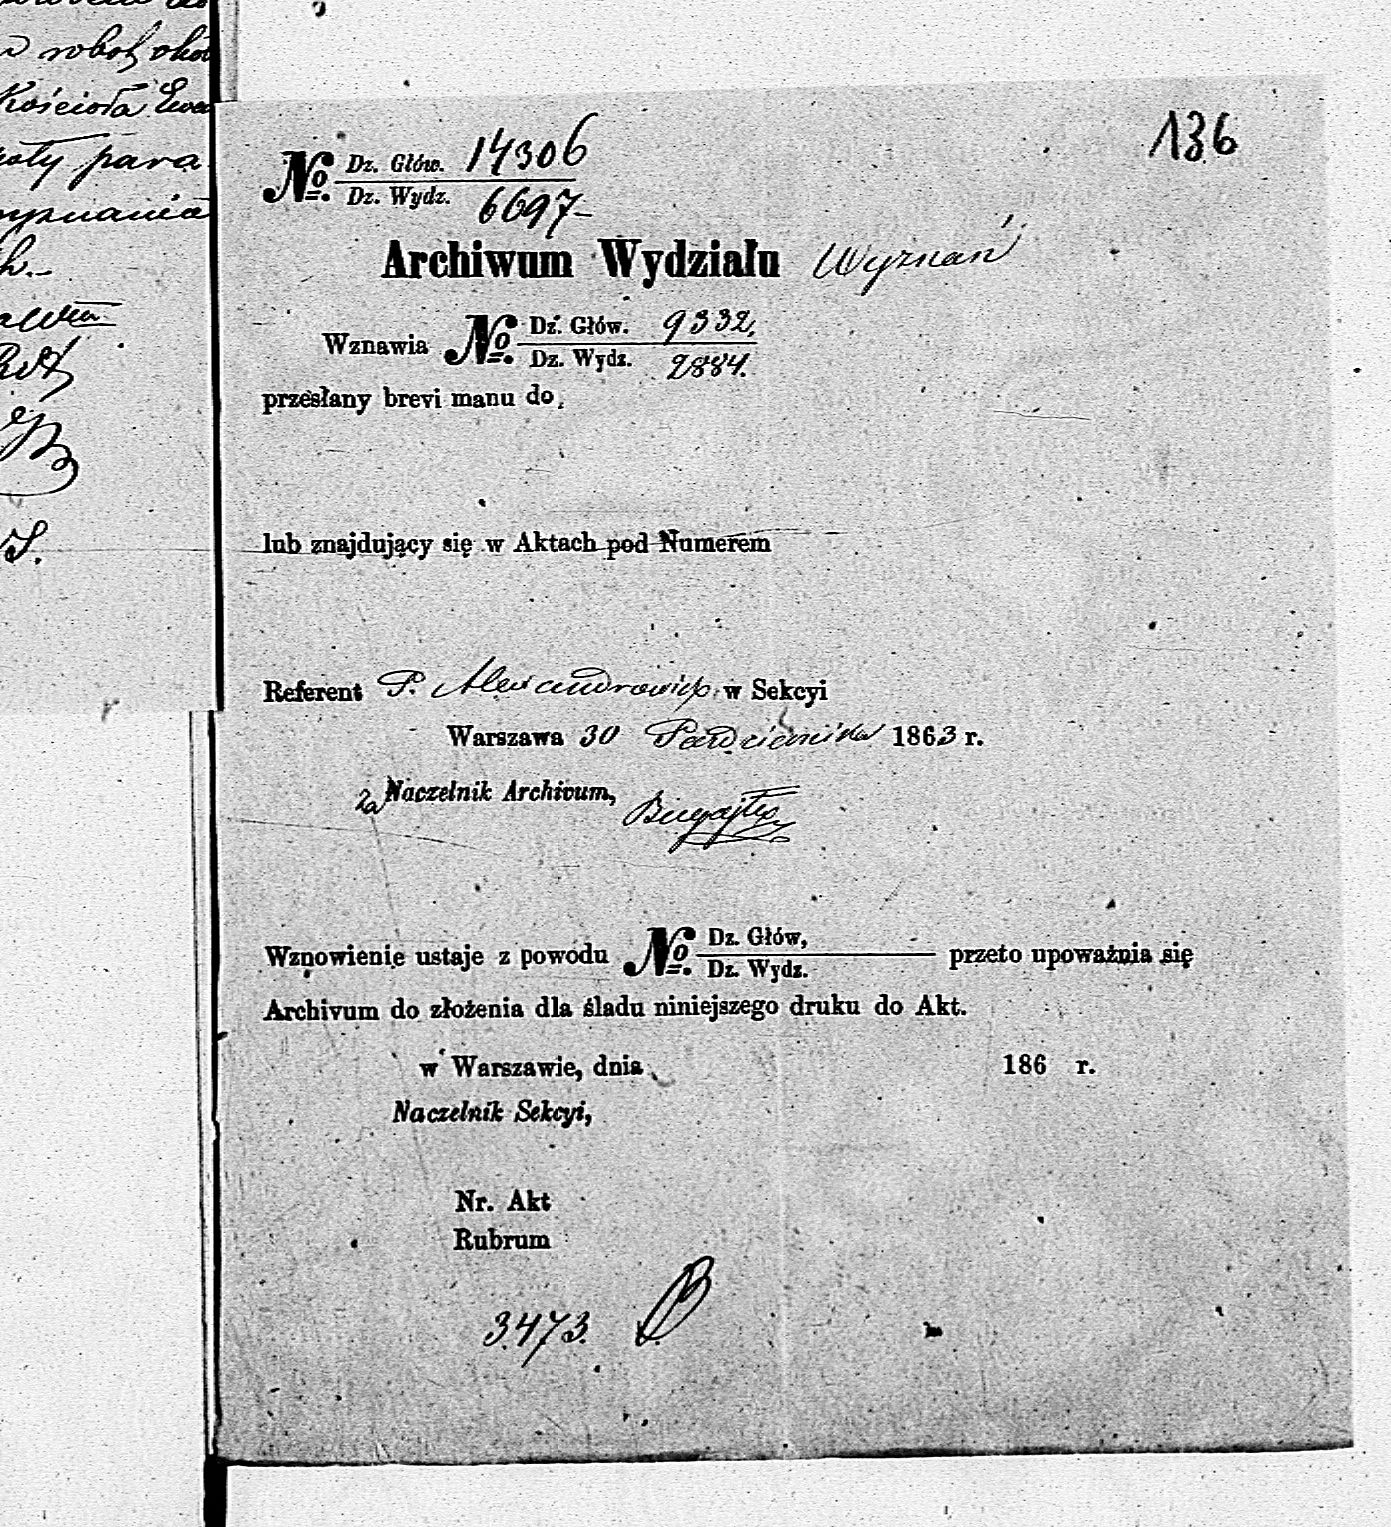 robot
Kościoła Ewa
para
wyznania
136
No. Dz. Głów. 14306
Dz. Wydz. 6697
Archiwum Wydziału Wyznań
Wznawia No. Dz. Głów. 9332.
Dz. Wydz. 2884.
przesłany brevi manu do
lub znajdujący się w Aktach pod Numerem
Referent P. Alexandrowicz w Sekcyi
Warszawa 30 Października 1863 r.
za Naczelnik Archivum,
Wznowienie ustaje z powodu No. Dz. Głów, przeto upoważnia się
Dz. Wydz.
Archivum do złożenia dla śladu niniejszego druku do Akt.
w Warszawie, dnia 186 r.
Naczelnik Sekcyi,
Nr. Akt
Rubrum
3473.